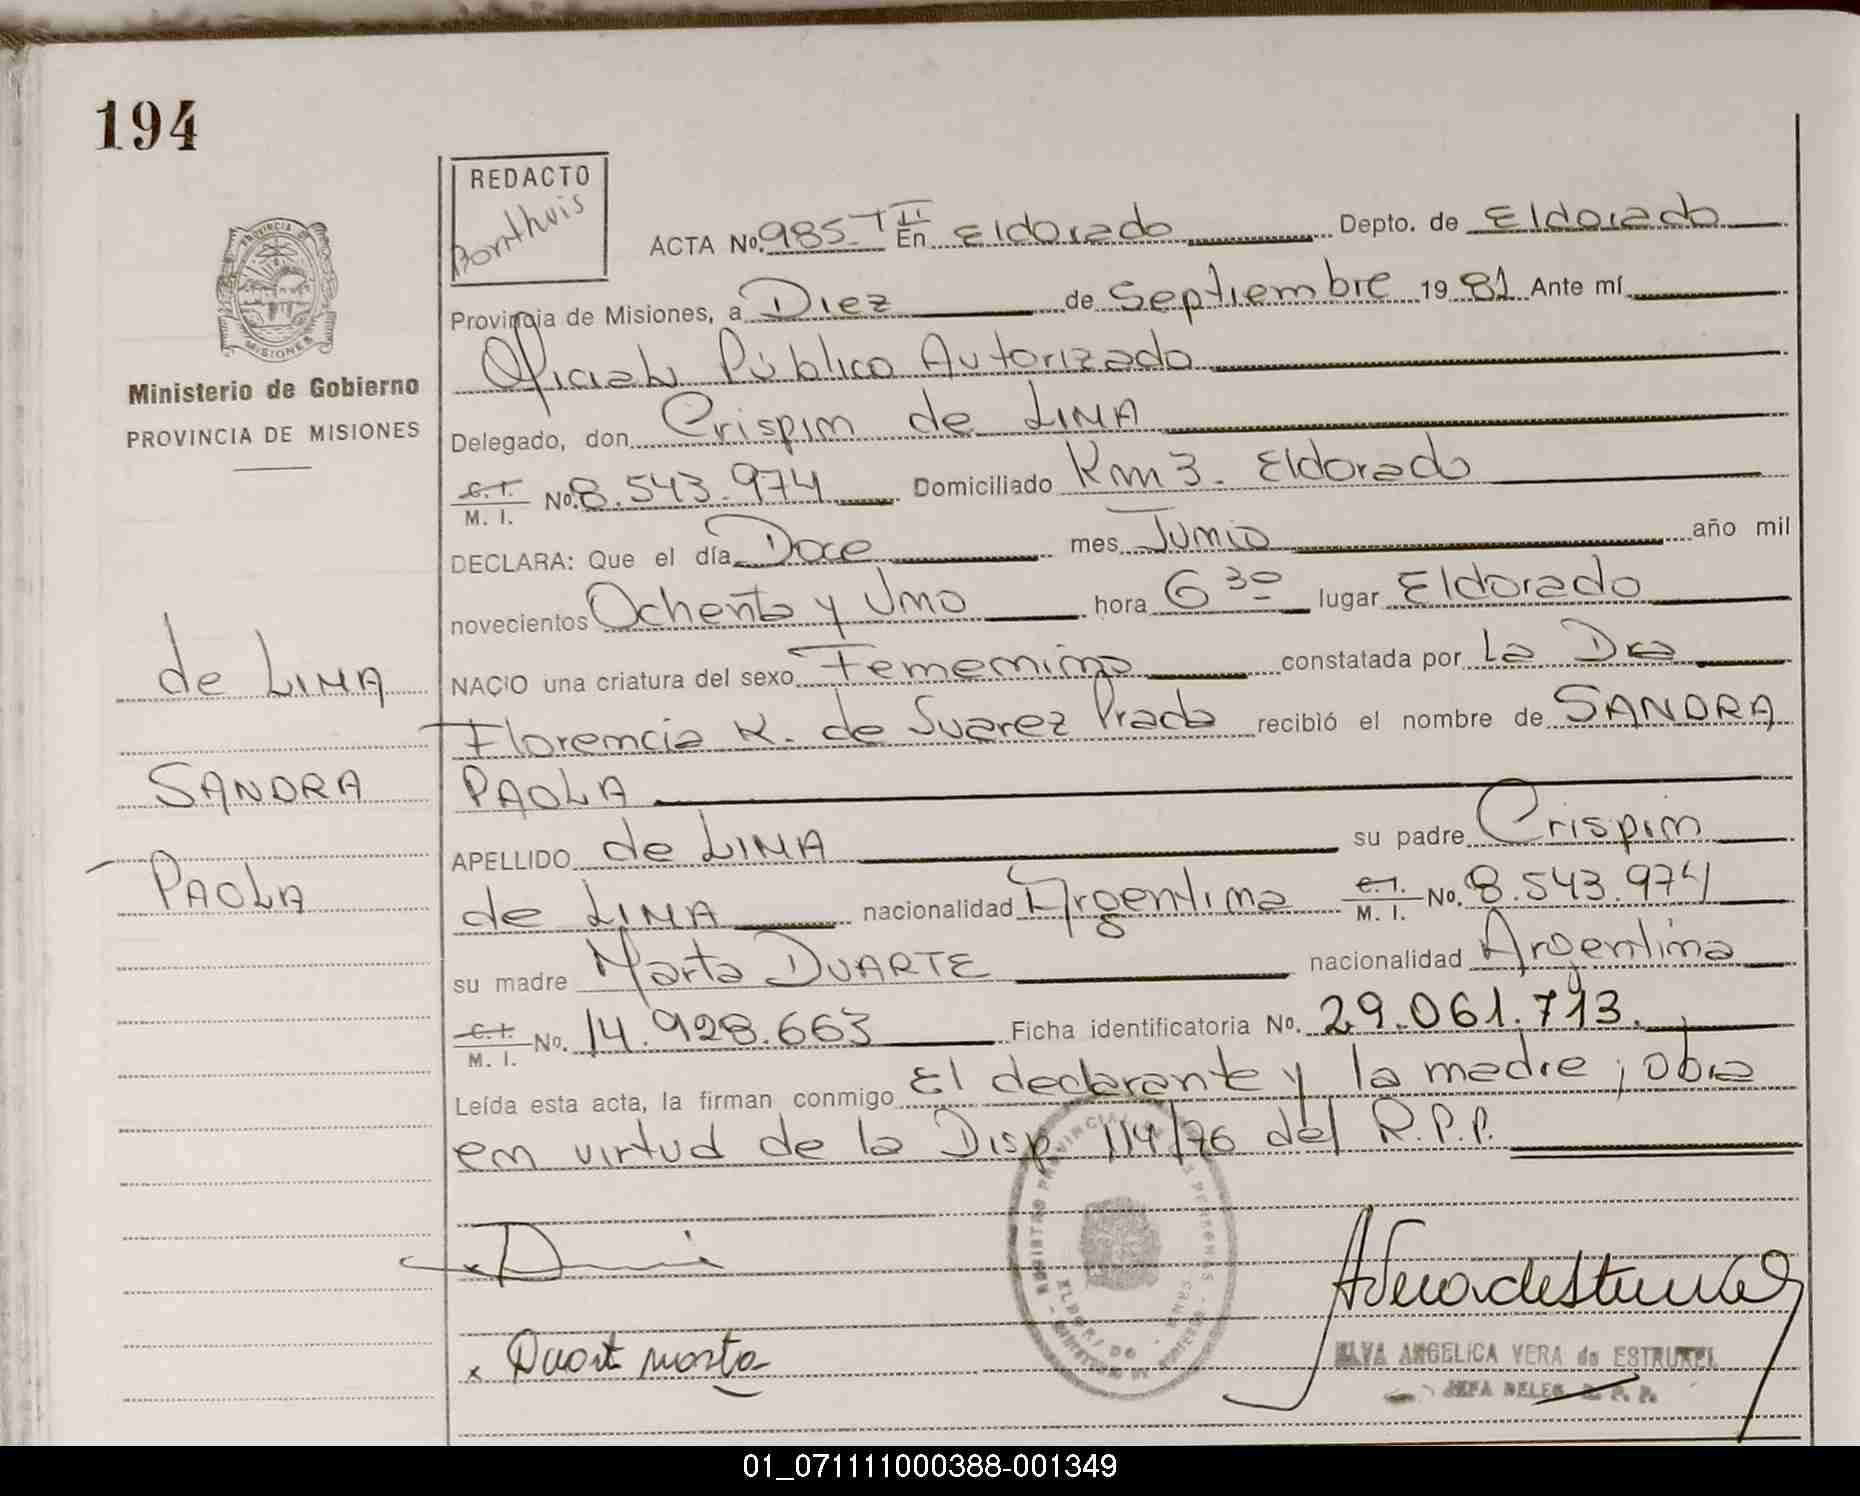 194
REDACTO
Bonthuis
ACTA No. 985-T II En Eldorado Depto. de Eldorado
Provincia de Misiones, a Diez de Septiembre 1981 Ante mí
Oficial Público Autorizado
Delegado, don Crispim de LIMA
C.I. M. I. No. 8.543.974 Domiciliado Km 3. Eldorado
DECLARA: Que el día Doce mes Junio año mil
novecientos Ochenta y Uno hora 6 30 lugar Eldorado
NACIO una criatura del sexo Femenino constatada por La Dra
Florencia K. de Suarez Prado recibió el nombre de SANDRA
PAOLA
APELLIDO de LIMA su padre Crispim
de LIMA nacionalidad Argentina C.I. M. I. No. 8.543.974
su madre Marta DUARTE nacionalidad Argentina
C.I. M. I. No. 14.928.663 Ficha identificatoria No. 29.061.713.
Leída esta acta, la firman conmigo El declarante y la madre; obra
en virtud de la Disp. 114/76 del R.P.P.
PROVINCIA DE
MISIONES
Ministerio de Gobierno
PROVINCIA DE MISIONES
de LIMA
SANDRA
PAOLA
x Duart marta
ELVA ANGELICA VERA de ESTRUKEL
JEFA DELEG. R. P. P.
01_071111000388-001349